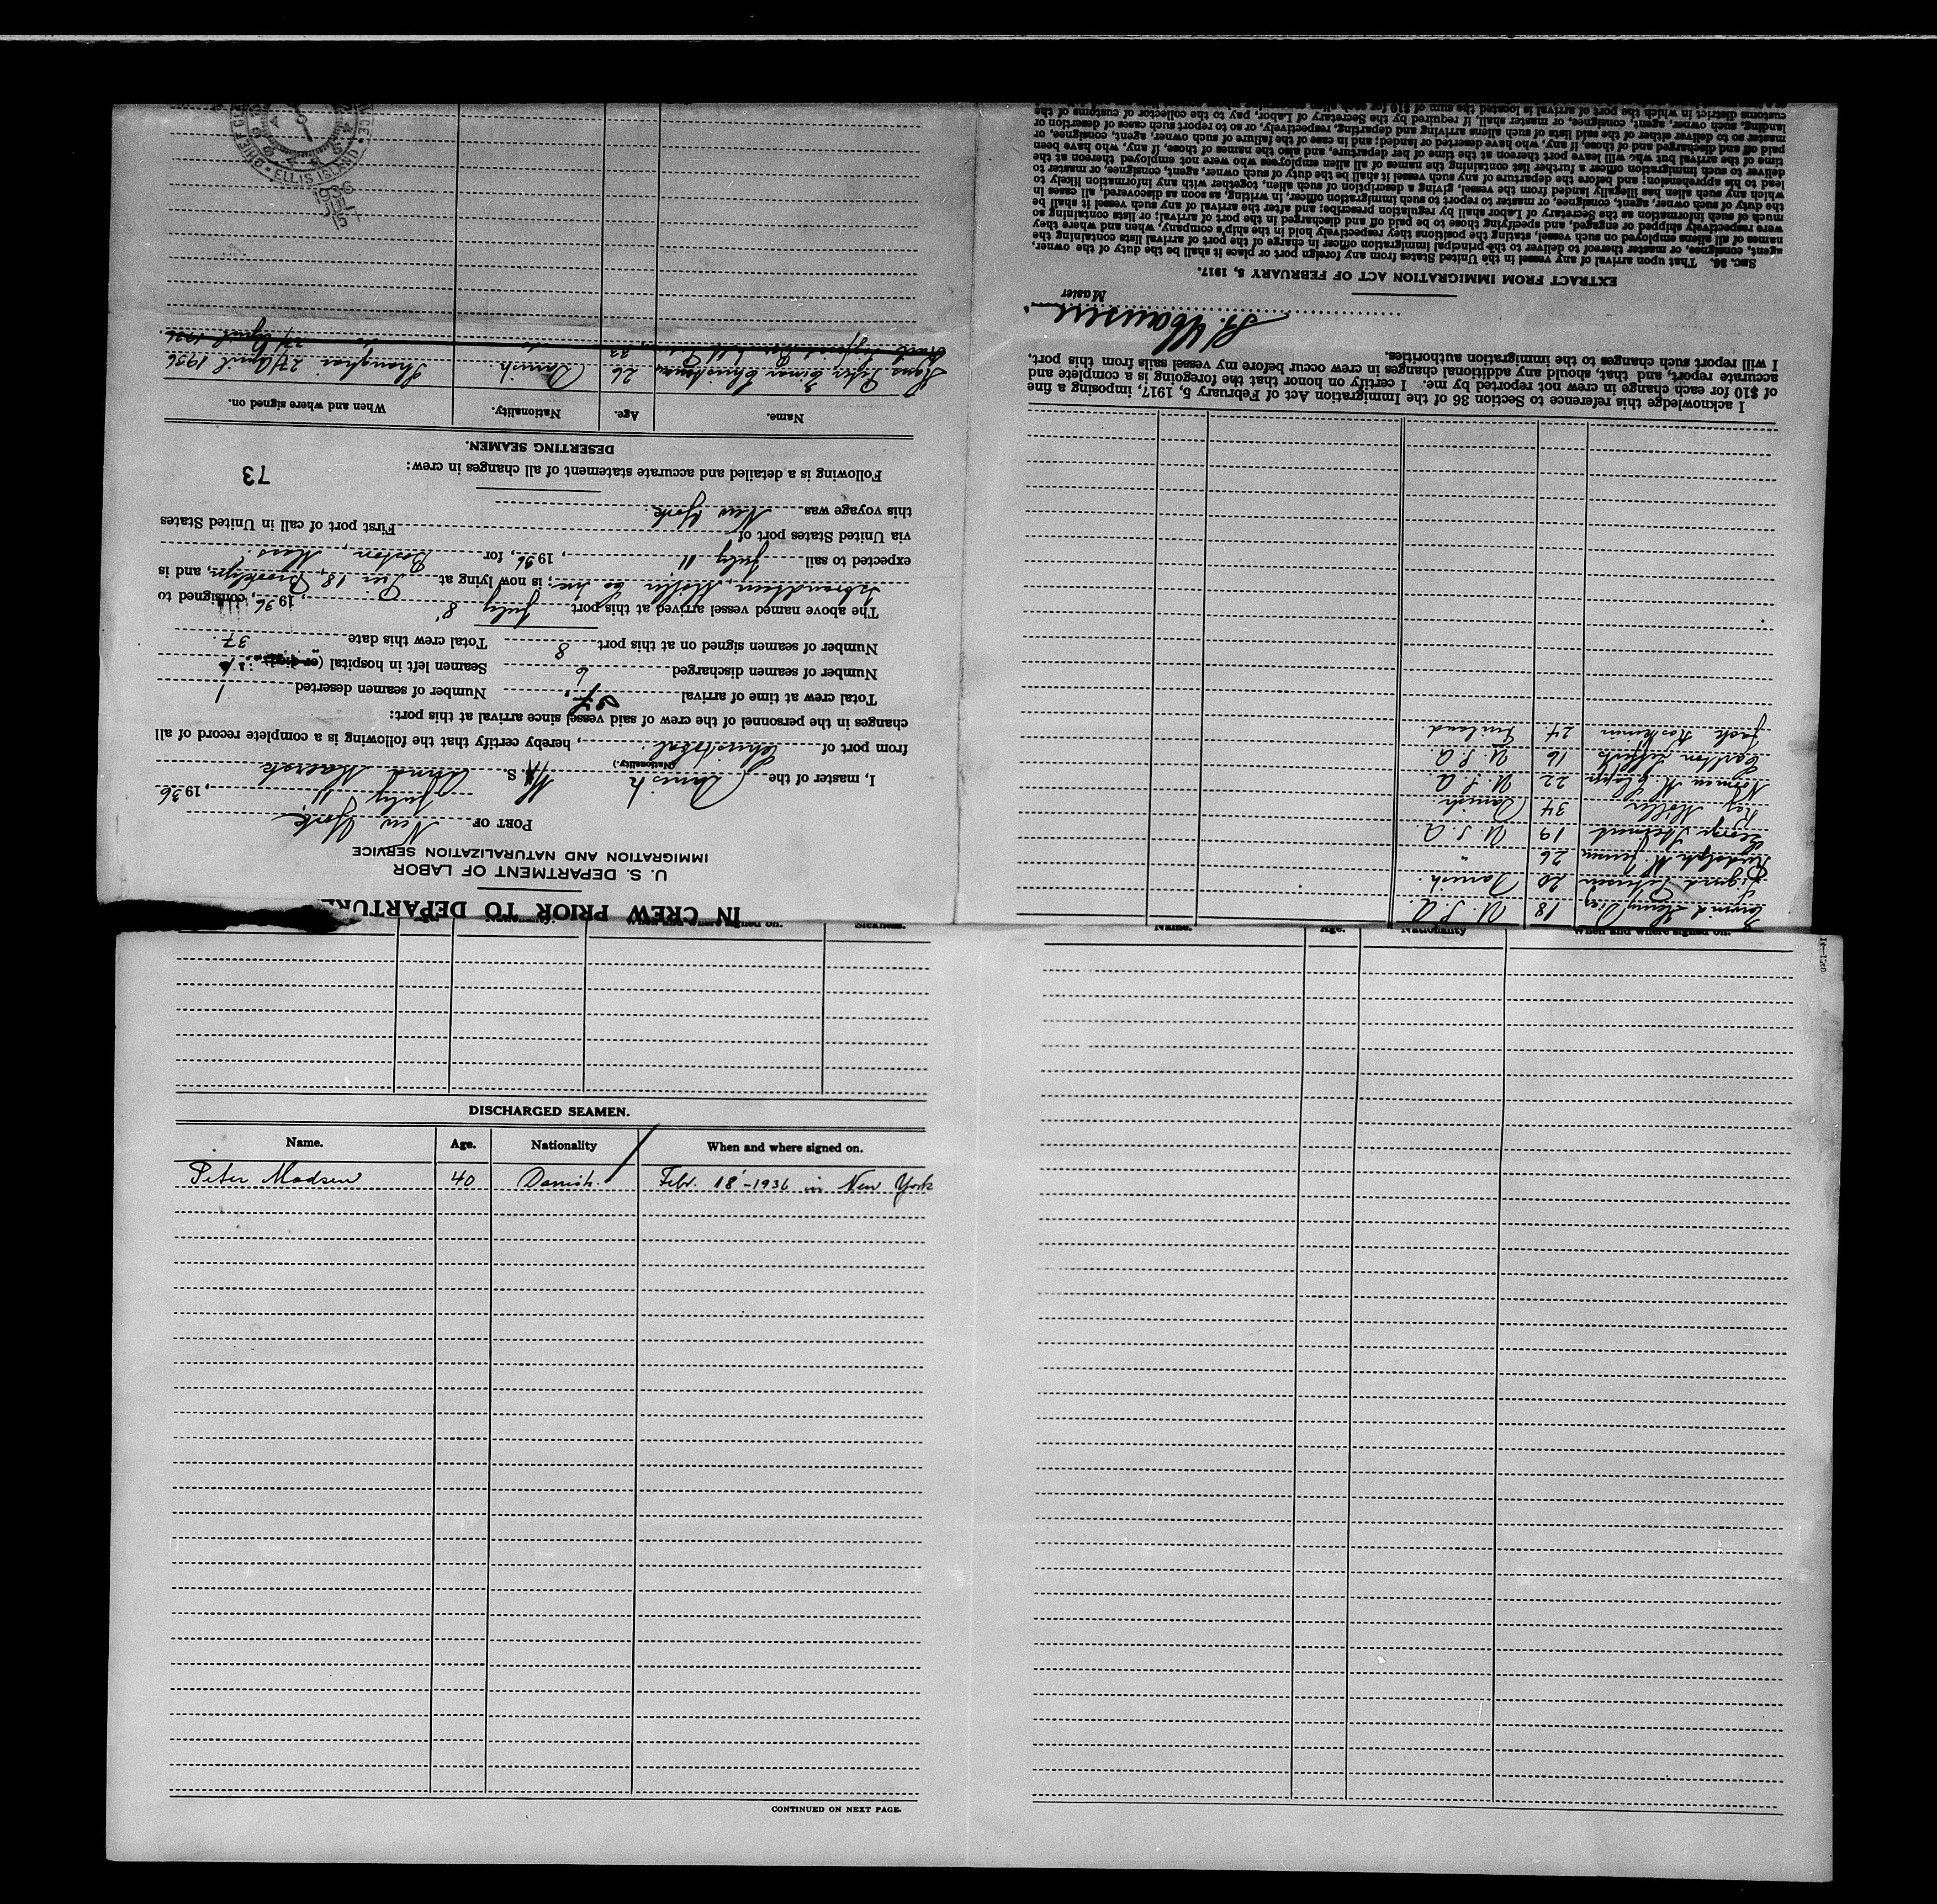 IN CREW PRIOR TO DEPARTURE
U. S. DEPARTMENT OF LABOR
IMMIGRATION AND NATURALIZATION SERVICE
PORT OF New York, July 11, 1936
I, master of the Danish M. S. Anna Maersk
(Nationality.)
from port of Christobal, hereby certify that the following is a complete record of all
changes in the personnel of the crew of said vessel since arrival at this port:
Total crew at time of arrival Number of seamen deserted 1
Number of seamen discharged 6 Seamen left in hospital
Number of seamen signed on at this port 8 Total crew this date 37
The above named vessel arrived at this port July 8, 1936, consigned to
Isbrandtsen Moller Co Inc., is now lying at Pier 18, Brooklyn, and is
expected to sail July 11, 1936, for Boston, Mass.
via United States port of First port of call in United States
this voyage was New York
73
Following is a detailed and accurate statement of all changes in crew:
DESERTING SEAMEN.
Name. Age. Nationality. When and where signed on.
Hans Peter Einar Christensen 26 Danish. Shanghai 27/April 1936
1936
JUL
15
ELLIS ISLAND
Name. Age. Nationality When and where signed on.
18 U. S. A.
Sigurd Petersen 20 Danish.
Rudolph M. Jensen 26 "
George 19 U. S. A.
Kaj Möller 34 Danish
Norman M. Clapp 22 U. S. A
Carlton 16 U. S. A
Koskinen 24 Finland.
I acknowledge this reference to Section 36 of the Immigration Act of February 5, 1917, imposing a fine
of $10 for each change in crew not reported by me. I certify on honor that the foregoing is a complete and
accurate report, and that, should any additional changes in crew occur before my vessel sails from this port,
I will report such changes to the immigration authorities.
Master
EXTRACT FROM IMMIGRATION ACT OF FEBRUARY 5, 1917.
SEC. 36. That upon arrival of any vessel in the United States from any foreign port or place it shall be the duty of the owner,
agent, consignee, or master thereof to deliver to the principal immigration officer in charge of the port of arrival lists containing the
names of all aliens employed on such vessel, stating the positions they respectively hold in the ship's company, when and where they
were respectively shipped or engaged, and specifying those to be paid off and discharged in the port of arrival; or lists containing so
much of such information as the Secretary of Labor shall by regulation prescribe; and after the arrival of any such vessel it shall be
the duty of such owner, agent, consignee, or master to report to such immigration officer, in writing, as soon as discovered, all cases in
which any such alien has illegally landed from the vessel, giving a description of such alien, together with any information likely to
lead to his apprehension; and before the departure of any such vessel it shall be the duty of such owner, agent, consignee, or master to
deliver to such immigration officer a further list containing the names of all alien employees who were not employed thereon at the
time of the arrival but who will leave port thereon at the time of her departure, and also the names of those, if any, who have been
paid off and discharged and of those, if any, who have deserted or landed; and in case of the failure of such owner, agent, consignee, or
master so to deliver either of the said lists of such aliens arriving and departing, respectively, or so to report such cases of desertion or
landing, such owner, agent, consignee, or master shall, if required by the Secretary of Labor, pay to the collector of customs of the
customs district in which the port of arrival is located the sum of $10 for each alien
When and where signed on. Sickness.
DISCHARGED SEAMEN.
Name. Age. Nationality When and where signed on.
Peter Madsen 40 Danish. Febr. 18-1936 in New York
CONTINUED ON NEXT PAGE.